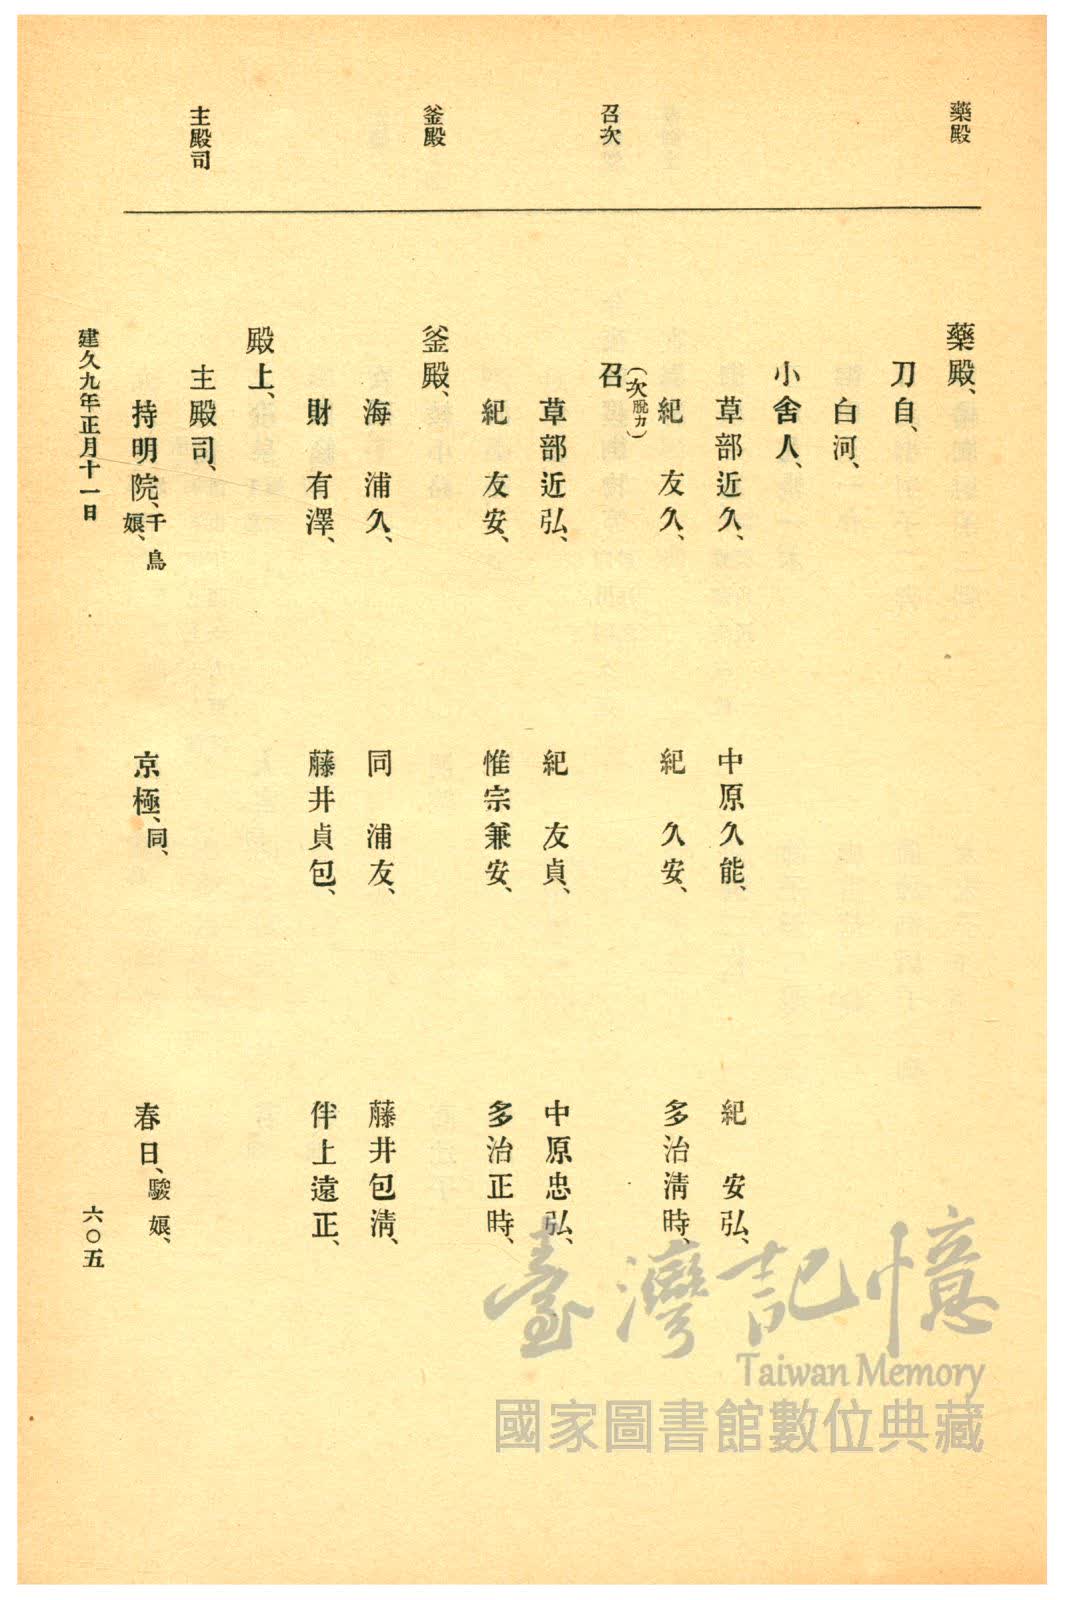 藥殿
召次
釜殿
主殿司
藥殿、
刀自、
白河、
小舍人、
草部近久、　中原久能、　紀　安弘、
紀　友久、　紀　久安、　多治淸時、
召(次脫カ)
草部近弘、　紀　友貞、　中原忠弘、
紀　友安、　惟宗兼安、　多治正時、
釜殿、
海　浦久、　同　浦友、　藤井包淸、
財　有澤、　藤井貞包、　伴上遠正、
殿上、
主殿司、
持明院、千鳥娘、　京極、同、　春日、駿娘、
建久九年正月十一日
六〇五
臺灣記憶
Taiwan Memory
國家圖書館數位典藏